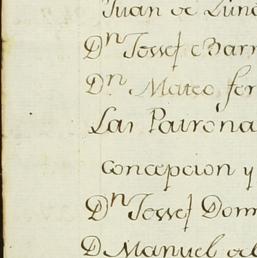 Juan de Lune
Dn Jossef Barr
Dn. Mateo fer
Las Patrona
concepcion y
Dn Jossef Dom
D Manuel de